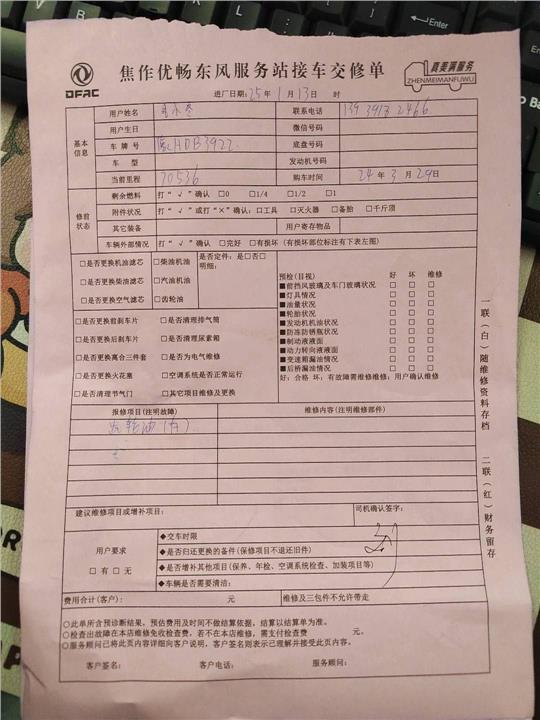 焦作优畅东风服务站接车交修单
DFAC
真美满服务
ZHENMEIMANFUWU
进厂日期:25年1月13日 时
基本信息
用户姓名 联系电话
用户生日 微信号码
车牌号 豫HDB3922 底盘号码
车型 发动机号码
当前里程 70536 购车时间 24年3月29日
修前状态
剩余燃料 打“√”确认 □0 □1/4 □1/2 □1
附件状况 打“√”或打“×”确认:□工具 □灭火器 □备胎 □千斤顶
其它装备 用户寄存物品
车辆外部情况 打“√”确认 □完好 □有损坏(有损坏部位标注有下表左图)
□是否更换机油滤芯 □柴油机油
□是否更换柴油滤芯 □汽油机油
□是否更换空气滤芯 □齿轮油
是否定件:是□否□
明细:
□是否更换前刹车片 □是否清理排气筒
□是否更换后刹车片 □是否清理尿素箱
□是否更换离合三件套 □是否为电气维修
□是否更换火花塞 □空调系统是否正常运行
□是否清理节气门 □其它项目维修及更换
预检(目视) 好 坏 维修
■前挡风玻璃及车门玻璃状况 □ □ □
■灯具情况 □ □ □
■油量状况 □ □ □
■轮胎状况 □ □ □
■发动机机油状况 □ □ □
■防冻防锈瓶状况 □ □ □
■制动液液面 □ □ □
■动力转向液液面 □ □ □
■变速箱漏油情况 □ □ □
■后桥漏油情况 □ □ □
好:合格 坏:有故障需维修维修:用户确认维修
报修项目(注明故障) 维修内容(注明维修部件)
建议维修项目或增补项目: 司机确认签字:
用户要求
□有□无
◆交车时限
◆是否归还更换的备件(保修项目不退还旧件)
◆是否增补其他项目(保养、年检、空调系统检查、加装项目等)
◆车辆是否需要清洁:
费用合计(客户): 元 维修及三包件不允许带走
○此单所含预诊断结果、预估费用及时间不做结算依据,结算以结算单为准。
○检查出故障在本店维修免收检查费,若不在本店维修,需支付检查费 元。
○服务顾问已将此页内容详细向客户说明,客户签名则表示已理解并接受此页内容。
客户签名: 客户电话: 服务顾问:
一联(白)随维修资料存档
二联(红)财务留存
Enter